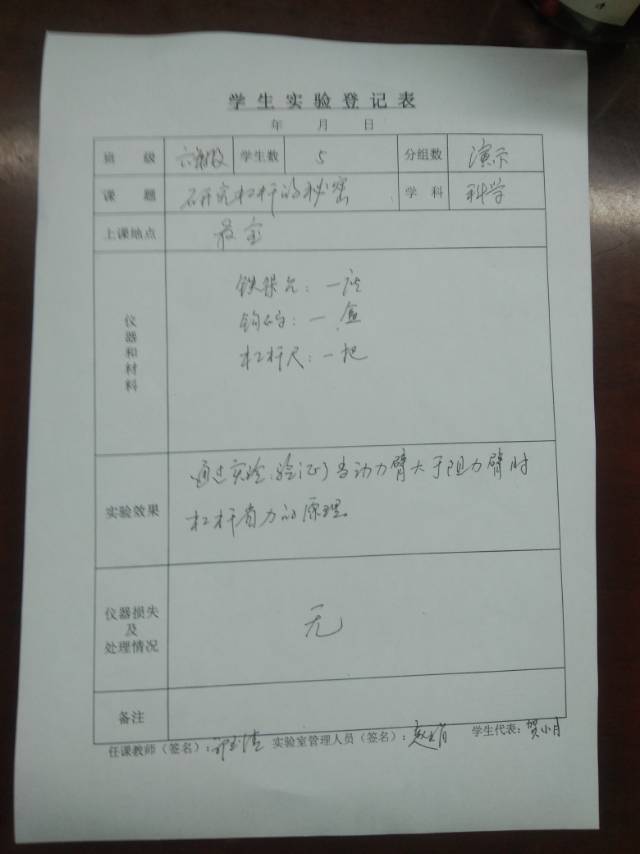 学生实验登记表
年 月 日
班级 六年级 学生数 5 分组数 演示
课题 研究杠杆的秘密 学科 科学
上课地点 教室
仪器和材料
铁架台：一座
钩码：一盒
杠杆尺：一把
实验效果
通过实验，验证了当动力臂大于阻力臂时
杠杆省力的原理。
仪器损失及处理情况 无
备注
任课教师（签名）： 实验室管理人员（签名）： 学生代表：贺小月